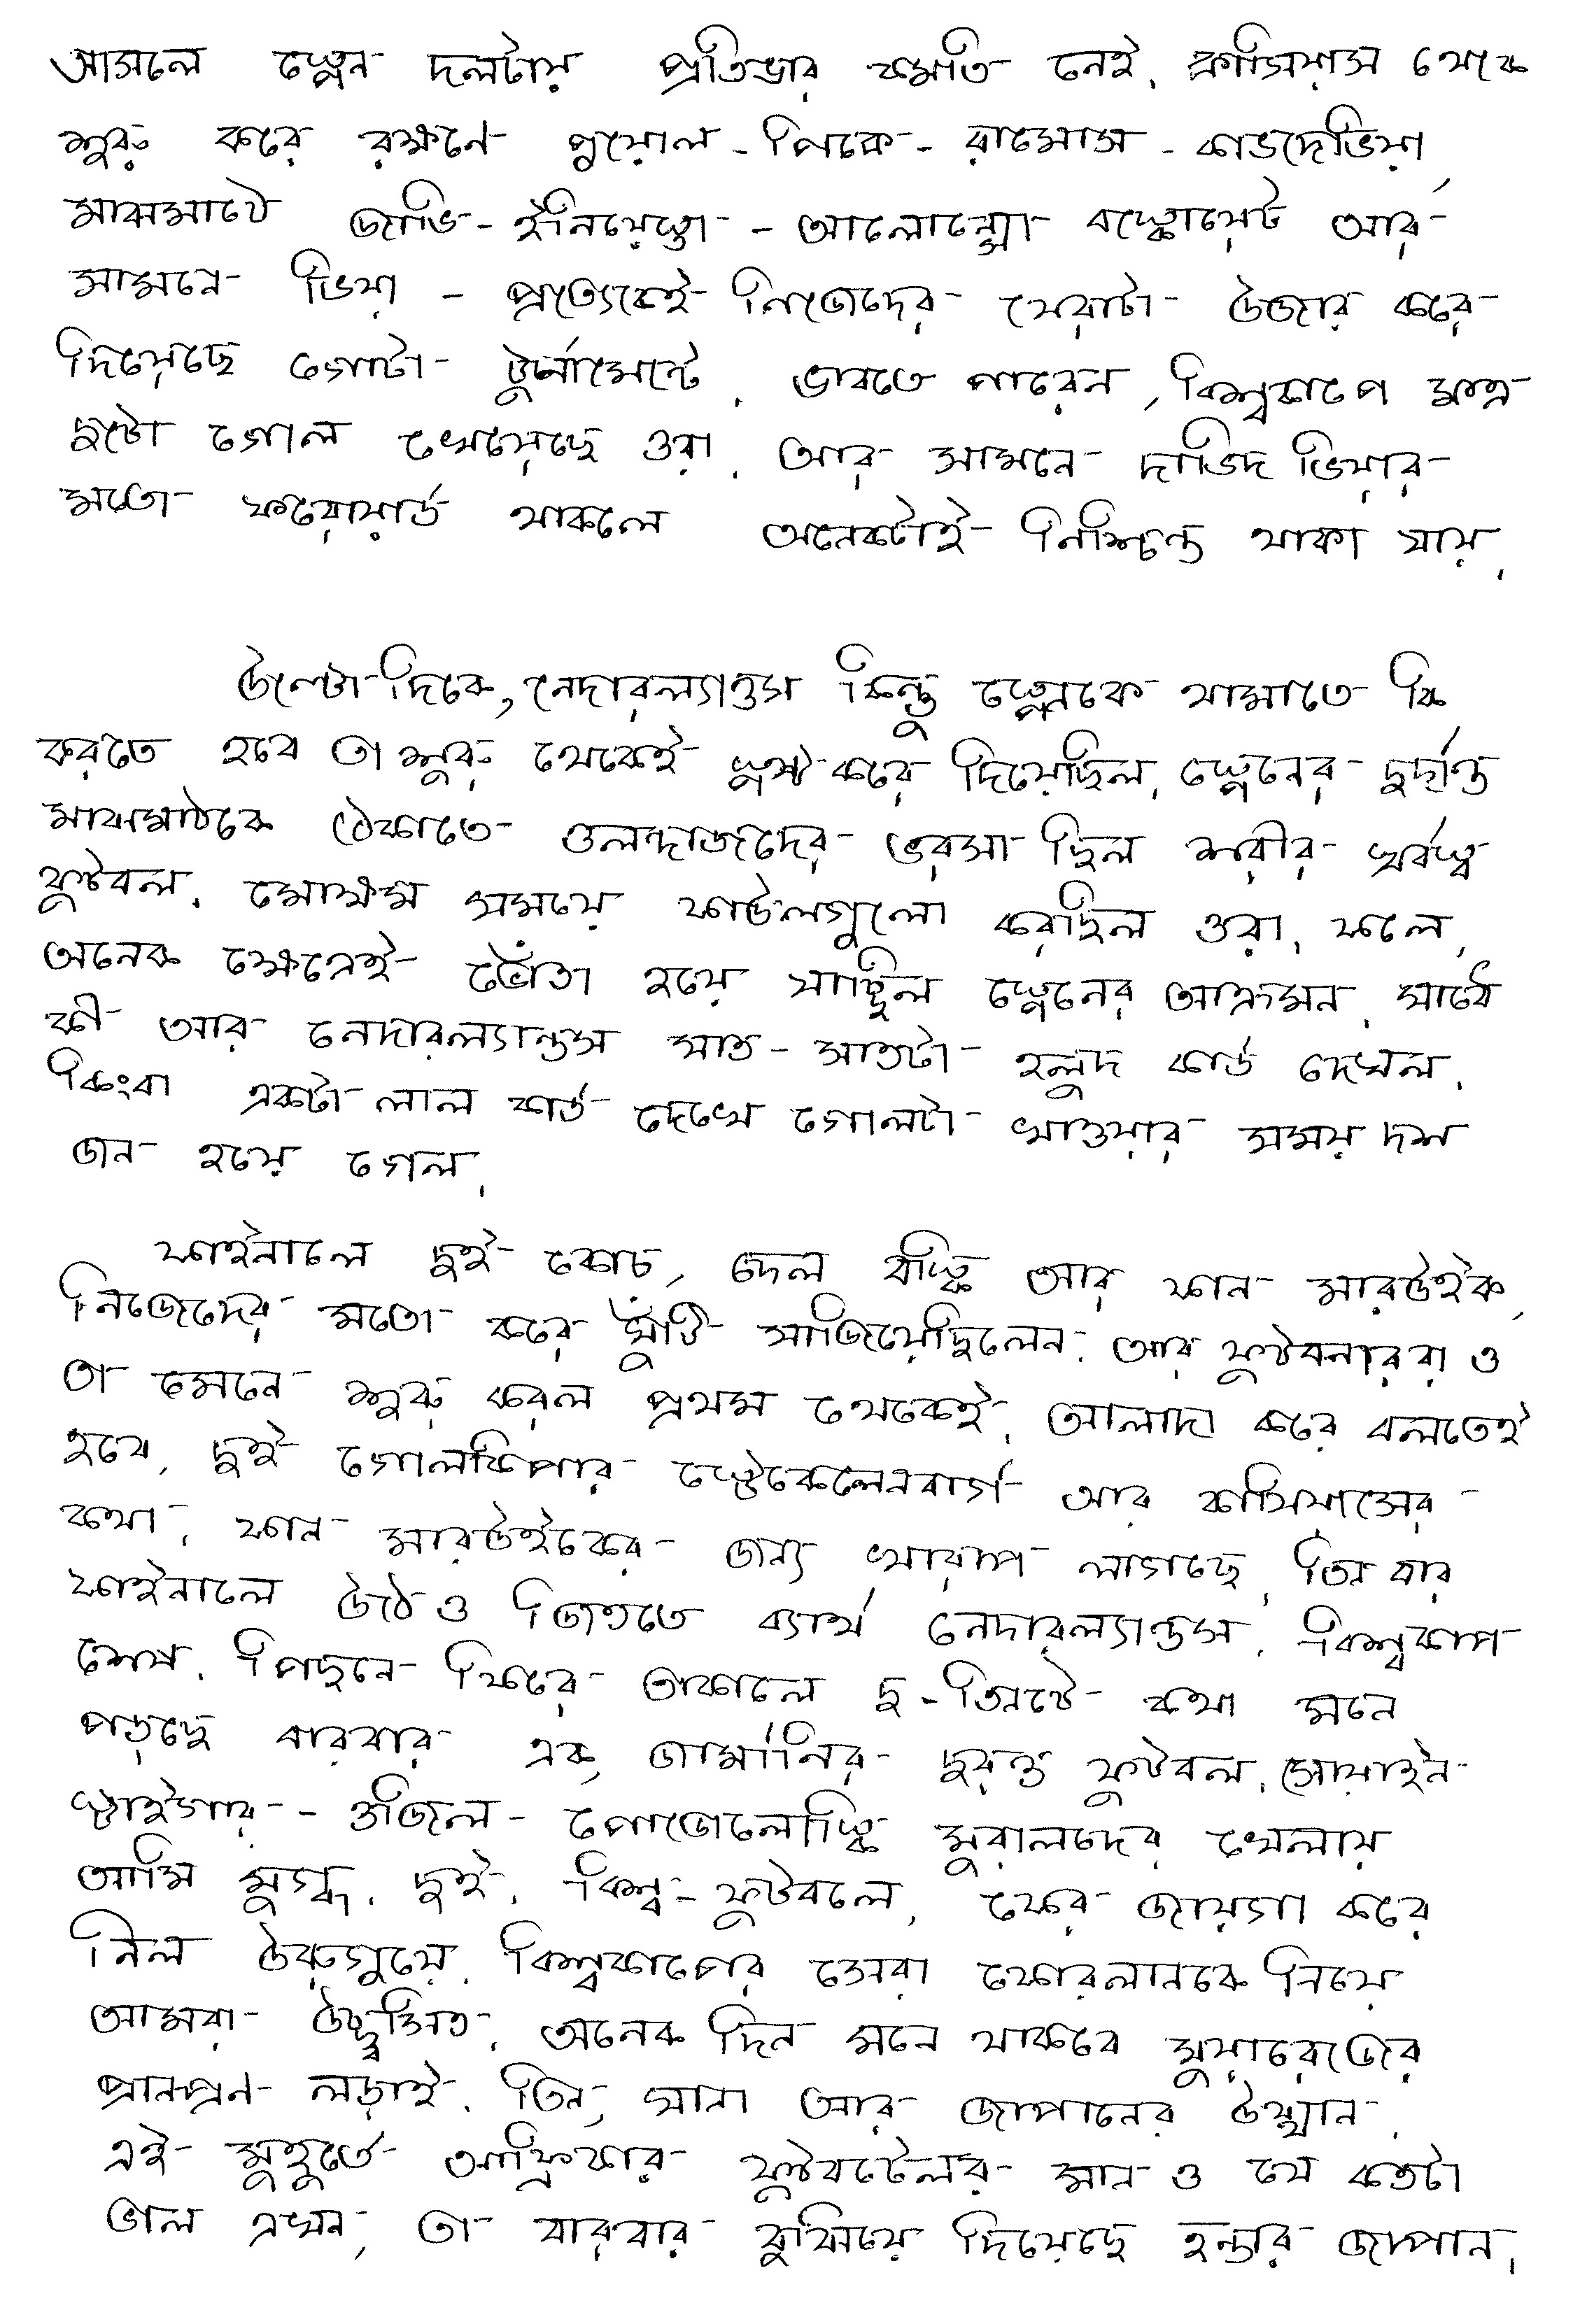 আসলে স্পেন দলটায় প্রতিভার কমতি নেই. ক্যাসিয়াস থেকে
শুরু করে রক্ষনে পুয়োল - পিকে - রামোস - কাভদেভিয়া,
মাঝমাঠে জাভি - ইনিয়েস্তা - আলোন্সো বস্কোয়েট আর
সামনে ভিয়া - প্রত্যেকেই নিজেদের সেরাটা উজার করে
দিয়েছে গোটা টুর্নামেন্টে. ভাবতে পারেন, বিশ্বকাপে মাত্র
দুটো গোল খেয়েছে ওরা. আর সামনে দাভিদ ভিয়ার
মতো ফরোয়ার্ড থাকলে অনেকটাই নিশ্চিন্ত থাকা যায়.
উল্টোদিকে, নেদারল্যাণ্ডস কিন্তু স্পেনকে থামাতে কি
করতে হবে তা শুরু থেকেই স্পষ্ট করে দিয়েছিল. স্পেনের দুর্দান্ত
মাঝমাঠকে ঠেকাতে ওলন্দাজদের ভরসা ছিল শরীর সর্বস্ব
ফুটবল. মোক্ষম সময়ে ফাউলগুলো করেছিল ওরা. ফলে,
অনেক ক্ষেত্রেই ভোঁতা হয়ে যাচ্ছিল স্পেনের আক্রমন. সাধে
কী আর নেদারল্যান্ডস সাত - সাতটা হলুদ কার্ড দেখল.
কিংবা একটা লাল কার্ড দেখে গোলটা খাওয়ার সময় দশ
জন হয়ে গেল.
ফাইনালে দুই কোচ, দেল বস্কি আর ফান মারউইক,
নিজেদের মতো করে ঘুঁটি সাজিয়েছিলেন. আর ফুটবলাররা ও
তা মেনে শুরু করল প্রথম থেকেই. আলাদা করে বলতেই
হবে, দুই গোলকিপার স্টেকেলেনবার্গ আর কাসিয়াসের
কথা. ফান মারউইকের জন্য খারাপ লাগছে. তিন বার
ফাইনালে উঠে ও জিততে ব্যার্থ নেদারল্যান্ডস. বিশ্বকাপ
শেষ. পিছনে ফিরে তাকালে দু - তিনটে কথা মনে
পড়ছে বারবার এক, জার্মানির দুরন্ত ফুটবল. সোয়াইন
স্টাইগার - ওজিল - পোডোলোস্কি মুরালদের খেলায়
আমি মুগ্ধ. দুই. বিশ্ব - ফুটবলে, ফের জায়গা করে
নিল উরুগুয়ে. বিশ্বকাপের সেরা ফোরলানকে নিয়ে
আমরা উচ্ছ্বসিত. অনেক দিন মনে থাকবে সুয়ারেজের
প্রানপ্রন লড়াই. তিন, ঘানা আর জাপানের উত্থান.
এই মুহূর্তে আফ্রিকার ফুটবটেলর মান ও যে কতটা
ভাল এখন, তা বারবার বুঝিয়ে দিয়েছে হন্ডার জাপান.